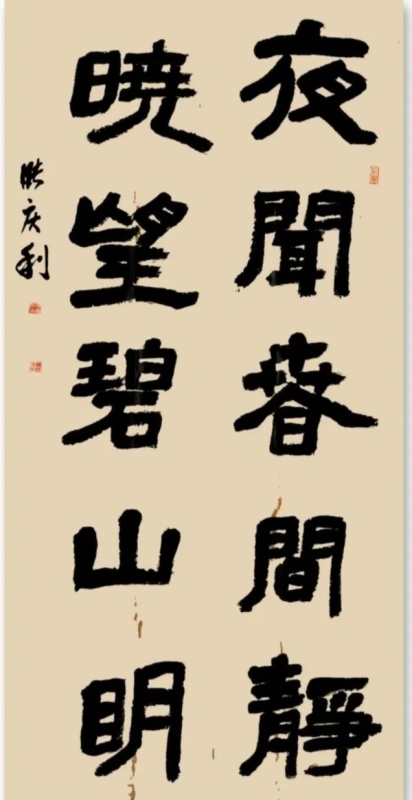 夜聞春間靜
曉望碧山明
庆利